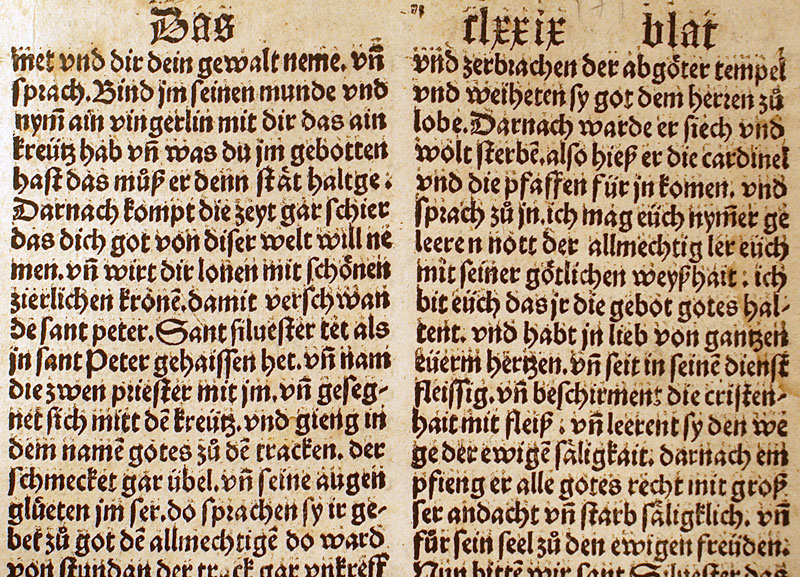 Das clxxix blat
met vnd dir dein gewalt neme. vn̄
sprach. Bind jm seinen munde vnd
nym̄ ain vingerlin mit dir das ain
kreütz hab vn̄ was du jm gebotten
hast das můß er denn stät haltge.
Darnach kompt die zeyt gar schier
das dich got von diser welt will ne
men. vn̄ wirt dir lonen mit schönen
zierlichen kronē. damit verschwan
de sant peter. Sant siluester tet als
jn sant Peter gehaissen het. vn̄ nam
die zwen priester mit jm. vn̄ geseg-
net sich mitt dē kreütz. vnd gieng in
dem namē gotes zů dē tracken. der
schmecket gar übel. vn̄ seine augen
glüeten jm ser. do sprachen sy ir ge-
bet zů got dē allmechtigē do ward
von stundan der track gar vnkreff
vnd zerbrachen der abgöter tempel
vnd weiheten sy got dem herren zů
lobe. Darnach warde er siech vnd
wolt sterbē. also hieß er die cardinel
vnd die pfaffen für jn komen. vnd
sprach zů jn. ich mag eüch nym̄er ge
leeren nott der allmechtig ler eüch
mit seiner götlichen weyßhait. ich
bit eüch das jr die gebot gotes hal-
tent. vnd habt jn lieb von gantzen
eüerm hertzen. vn̄ seit in seinē dienst
fleissig. vn̄ beschirment die cristen-
hait mit fleiß. vn̄ leerent sy den we
ge der ewigē säligkait. darnach em
pfieng er alle gotes recht mit groß
ser andacht vn̄ starb säligklich. vn̄
für sein seel zů den ewigen freüden.
Nun bitten wir sant Siluester das